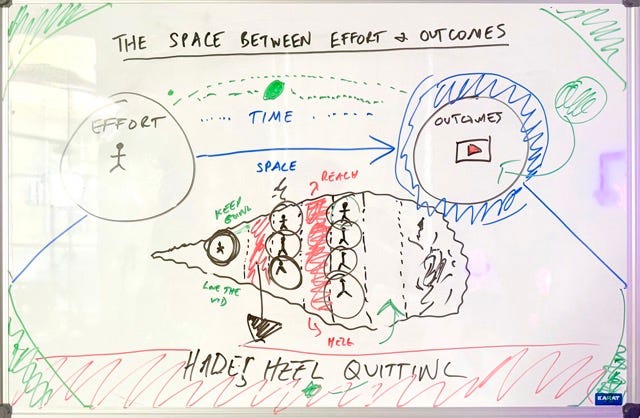 THE SPACE BETWEEN EFFORT & OUTCOMES
EFFORT
TIME
OUTCOMES
SPACE
REACH
KEEP
GOING
LOVE THE
HERE
HADES HEEL QUITTING
KARAT